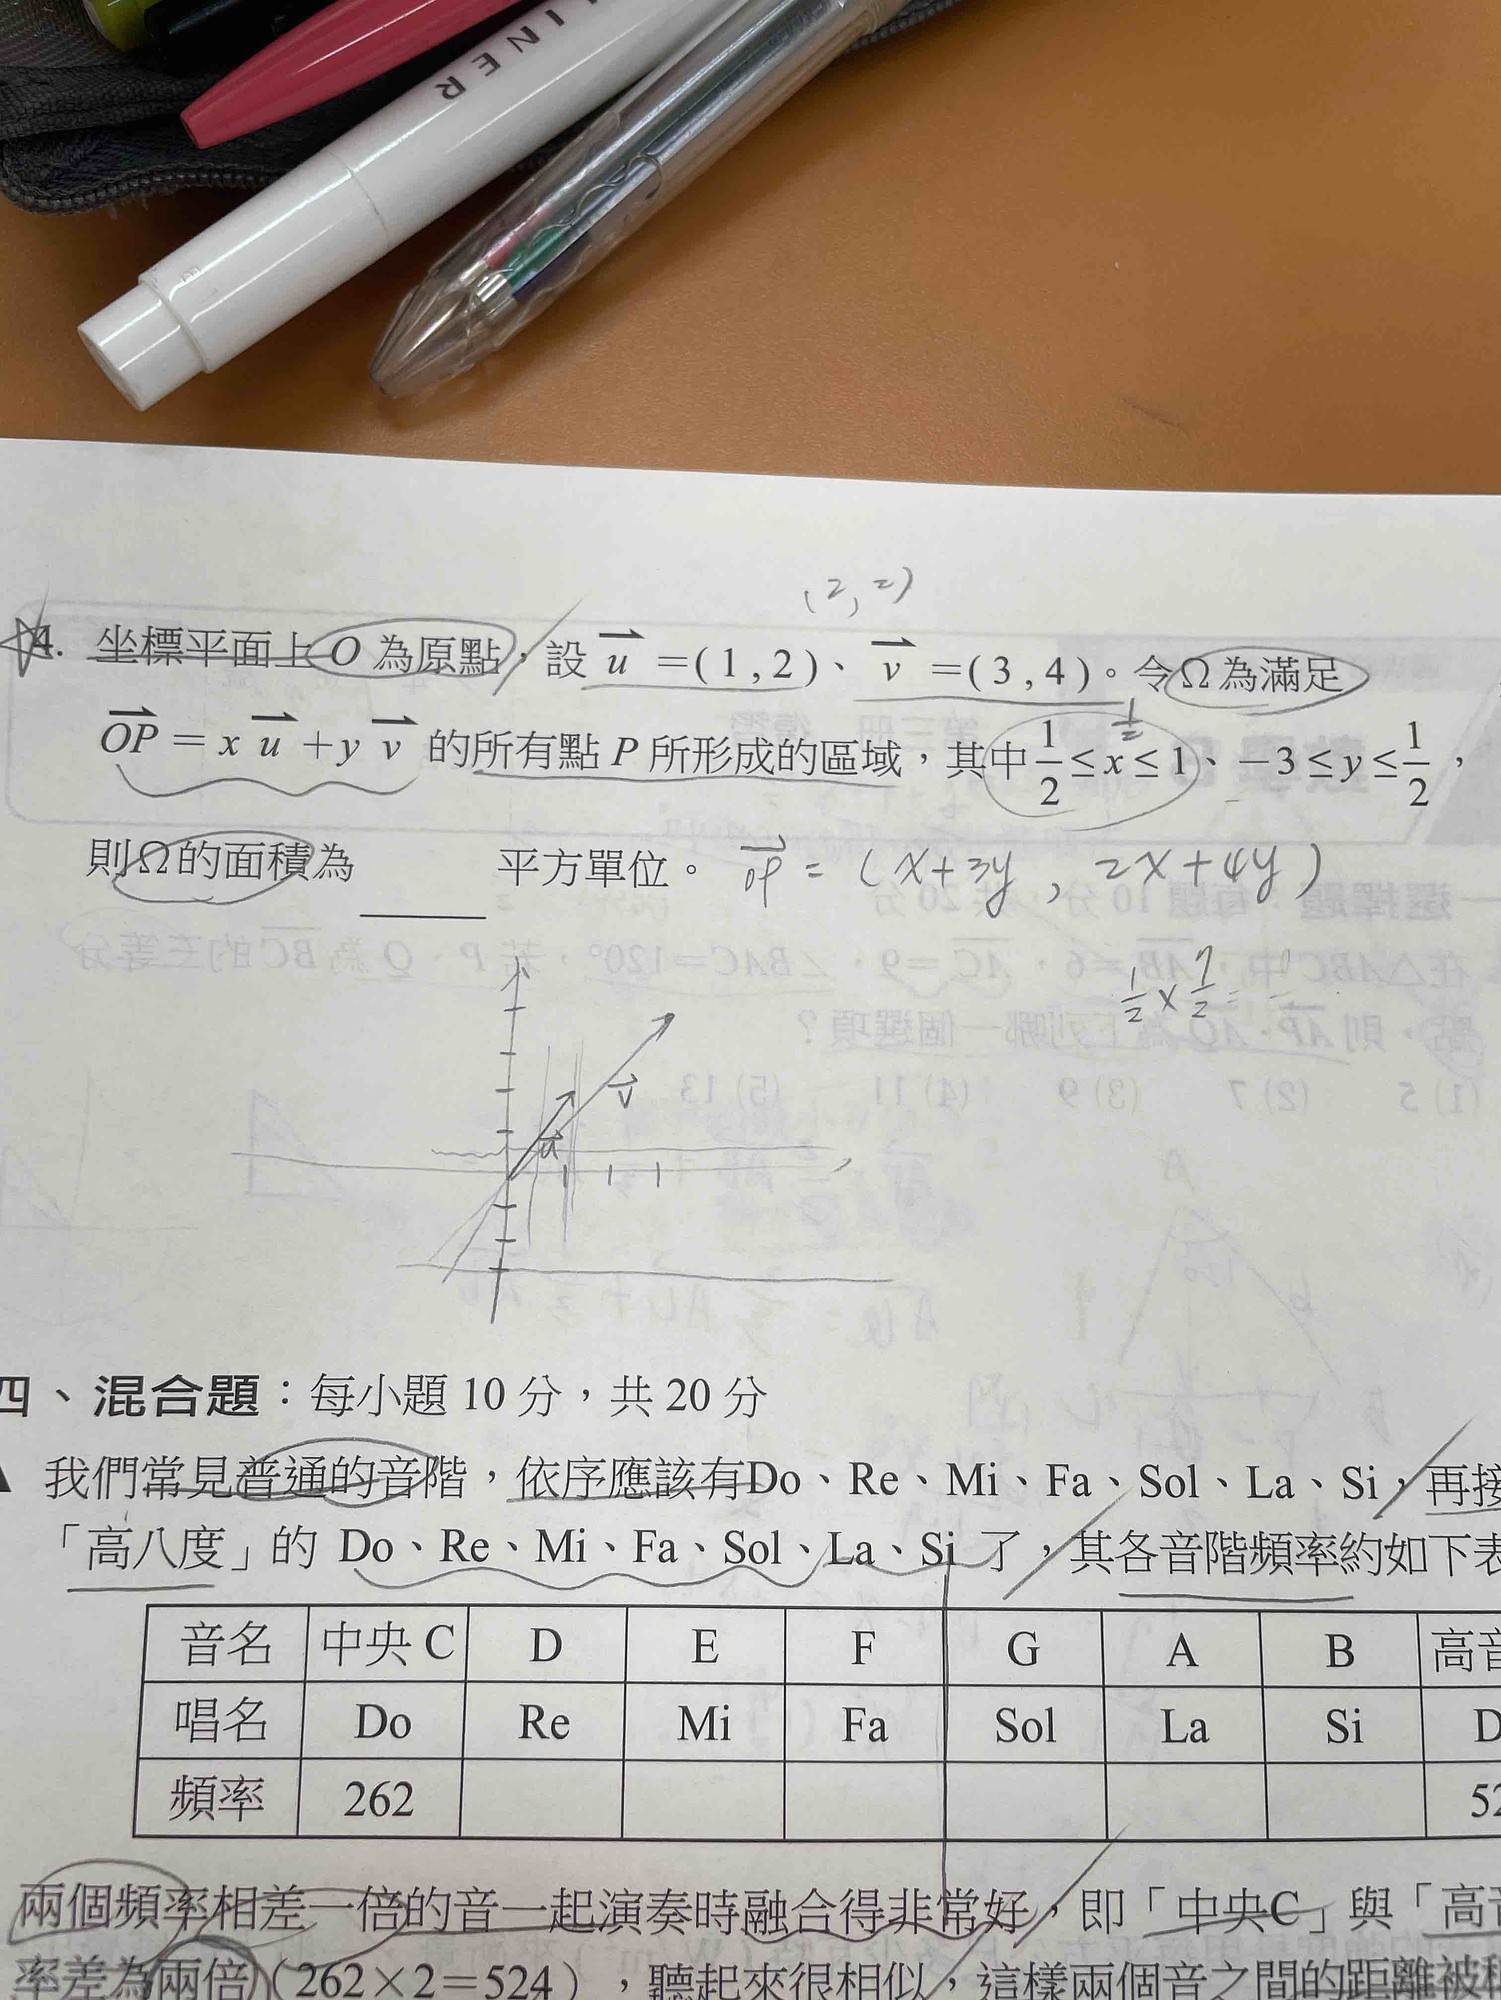 LINER
(2,2)
4. 坐標平面上 O 為原點，設 u =(1,2)、v =(3,4)。令Ω為滿足
1/2
OP = x u + y v 的所有點 P 所形成的區域，其中 1/2 ≤ x ≤ 1、−3 ≤ y ≤ 1/2，
則Ω的面積為______平方單位。 OP = (x+3y, 2x+4y)
1/2 × 7/2 =
v
u
四、混合題：每小題 10 分，共 20 分
我們常見普通的音階，依序應該有Do、Re、Mi、Fa、Sol、La、Si，再接
「高八度」的 Do、Re、Mi、Fa、Sol、La、Si 了，其各音階頻率約如下表
音名 中央 C D E F G A B 高音
唱名 Do Re Mi Fa Sol La Si D
頻率 262 52
兩個頻率相差一倍的音一起演奏時融合得非常好，即「中央C」與「高音
率差為兩倍（262×2＝524），聽起來很相似，這樣兩個音之間的距離被